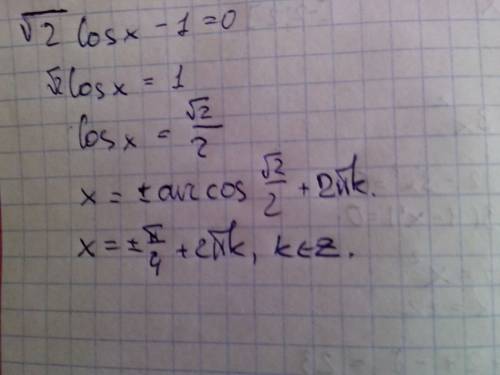 √2 cosx - 1 = 0
√2 cosx = 1
cosx = √2/2
x = ± arccos √2/2 + 2πk.
x = ± π/4 + 2πk, k∈Z.